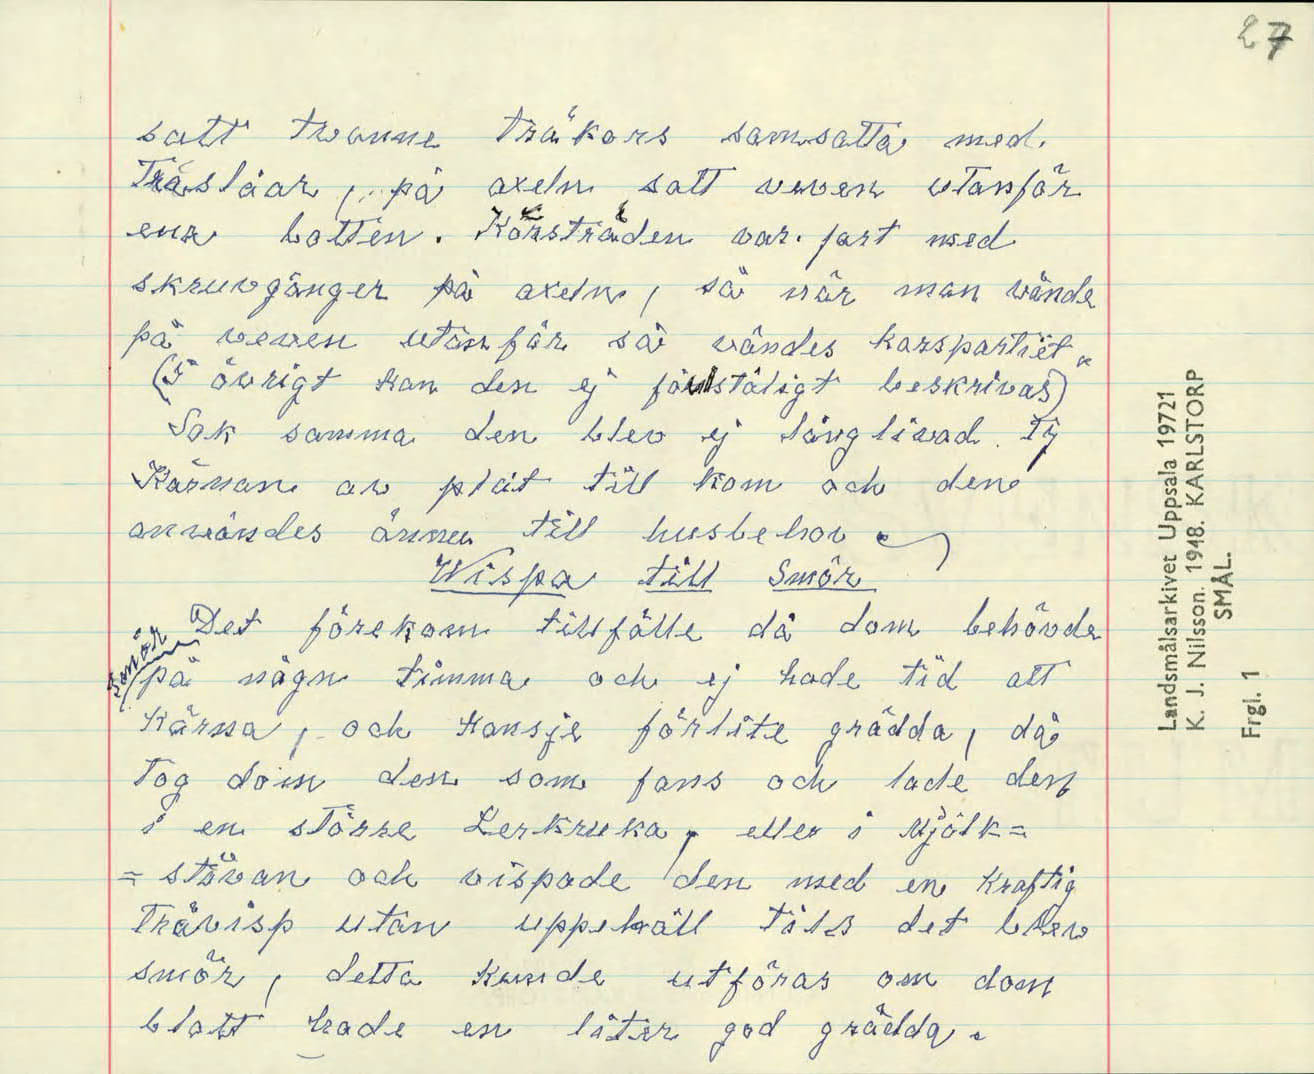 27
satt tvenne träkors samsatta med
Träslåar, på axeln satt veven utanför
ena botten. Korsträden var fart med
skruvgänger på axeln, så när man vände
på veven utanför så vändes korspartiet.
(I övrigt kan den ej fullstäligt beskrivas)
Sak samma den blev ej långlivad Ty
Kärnan av plåt till kom och den
användes ännu till husbehov.
Wispa till Smör
Det förekom tillfälle då dom behövde
smör
på någn timma och ej hade tid att
Kärna, och Kansje förlite grädda, då
Tog dom den som fans och lade den
i en större Lerkruka, eller i Mjölk=
=stävan och vispade den med en Kraftig
Trävisp utan uppehåll tils det blev
smör, detta kunde utföras om dom
blott hade en liter god grädda.
Landsmålsarkivet Uppsala 19721
K. J. Nilsson. 1948. KARLSTORP
SMÅL.
Frgl. 1